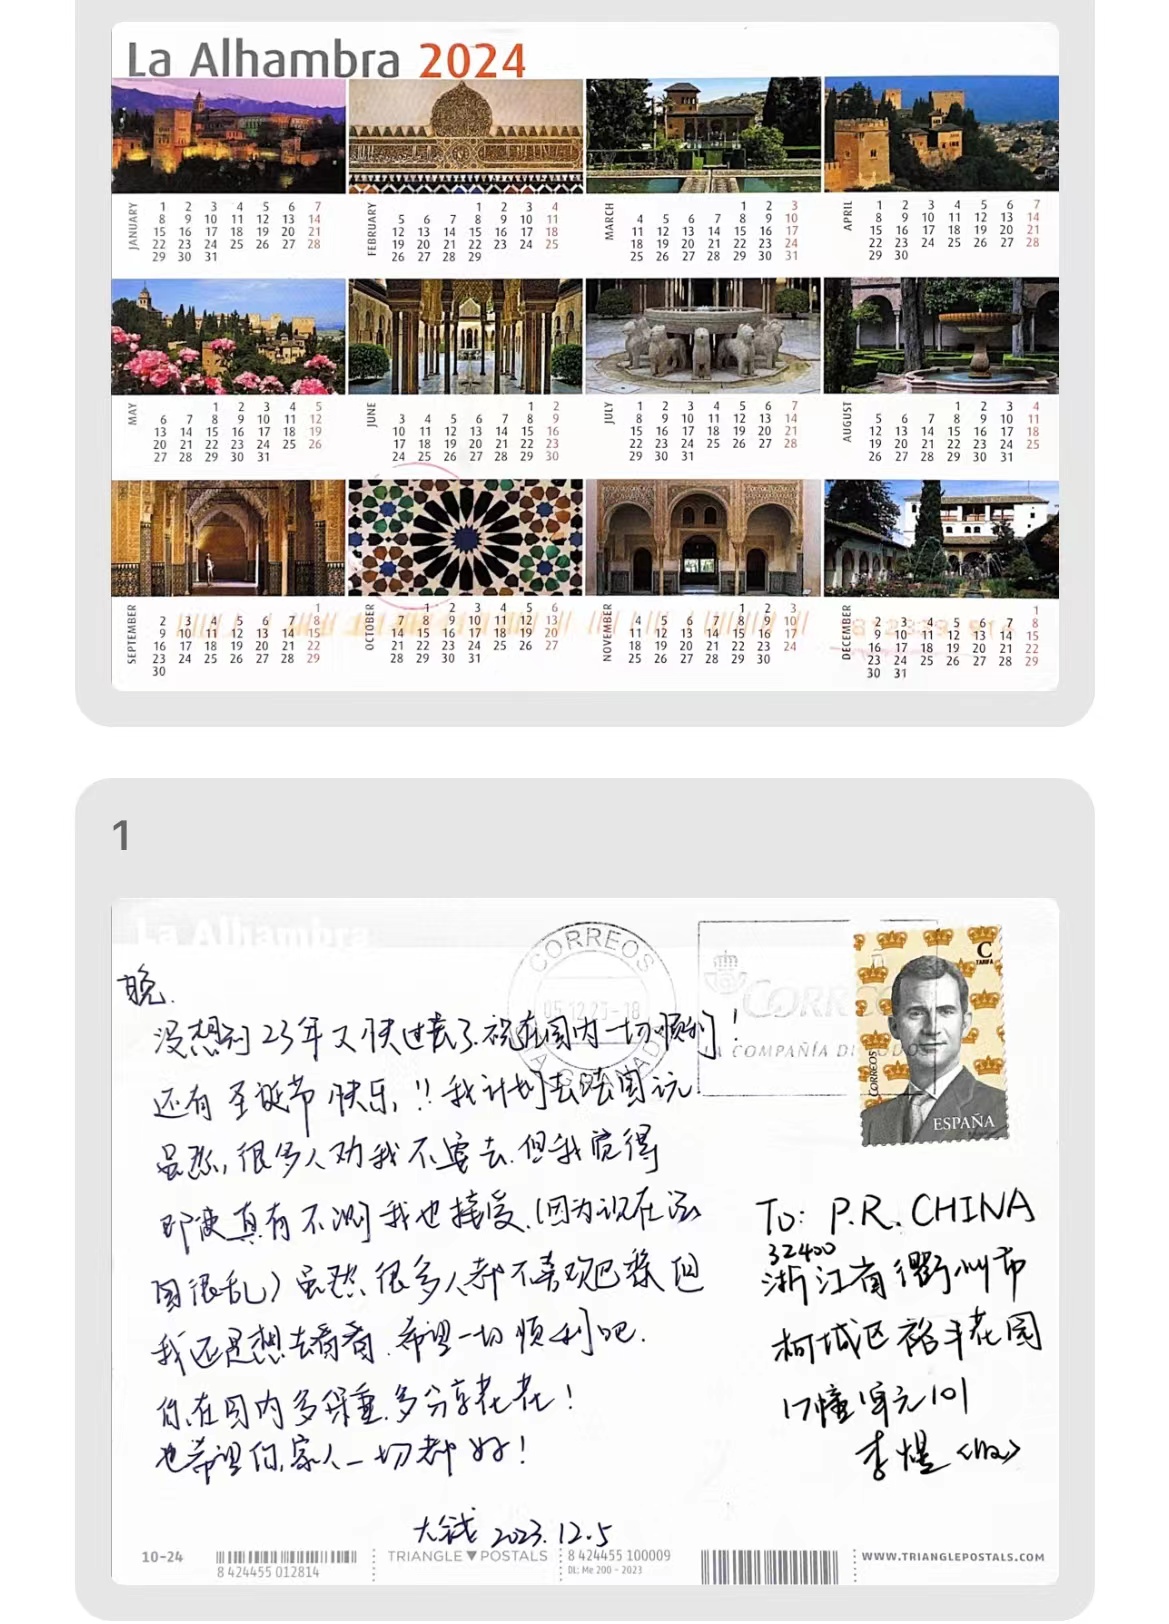 La Alhambra 2024
JANUARY
1 2 3 4 5 6 7
8 9 10 11 12 13 14
15 16 17 18 19 20 21
22 23 24 25 26 27 28
29 30 31
FEBRUARY
1 2 3 4
5 6 7 8 9 10 11
12 13 14 15 16 17 18
19 20 21 22 23 24 25
26 27 28 29
MARCH
1 2 3
4 5 6 7 8 9 10
11 12 13 14 15 16 17
18 19 20 21 22 23 24
25 26 27 28 29 30 31
APRIL
1 2 3 4 5 6 7
8 9 10 11 12 13 14
15 16 17 18 19 20 21
22 23 24 25 26 27 28
29 30
MAY
1 2 3 4 5
6 7 8 9 10 11 12
13 14 15 16 17 18 19
20 21 22 23 24 25 26
27 28 29 30 31
JUNE
1 2
3 4 5 6 7 8 9
10 11 12 13 14 15 16
17 18 19 20 21 22 23
24 25 26 27 28 29 30
JULY
1 2 3 4 5 6 7
8 9 10 11 12 13 14
15 16 17 18 19 20 21
22 23 24 25 26 27 28
29 30 31
AUGUST
1 2 3 4
5 6 7 8 9 10 11
12 13 14 15 16 17 18
19 20 21 22 23 24 25
26 27 28 29 30 31
SEPTEMBER
1
2 3 4 5 6 7 8
9 10 11 12 13 14 15
16 17 18 19 20 21 22
23 24 25 26 27 28 29
30
OCTOBER
1 2 3 4 5 6
7 8 9 10 11 12 13
14 15 16 17 18 19 20
21 22 23 24 25 26 27
28 29 30 31
NOVEMBER
1 2 3
4 5 6 7 8 9 10
11 12 13 14 15 16 17
18 19 20 21 22 23 24
25 26 27 28 29 30
DECEMBER
1
2 3 4 5 6 7 8
9 10 11 12 13 14 15
16 17 18 19 20 21 22
23 24 25 26 27 28 29
30 31
1
La Alhambra
CORREOS
05.12.23-18
GRANADA
CORREOS
LA COMPAÑÍA DE TODOS
C
TARIFA
CORREOS
ESPAÑA
没想到23年又快过去了.祝在国内一切顺利!
还有圣诞节快乐,!!我计划去法国玩
虽然,很多人劝我不要去.但我觉得
即使真有不测我也接受.(因为现在法
国很乱)虽然很多人都不喜欢巴黎但
我还是想去看看.希望一切顺利吧.
你在国内多保重.多分享花花!
也希望你,家人一切都好!
大钱 2023.12.5
To: P.R. CHINA
32400
浙江省衢州市
柯城区裕丰花园
17幢 单元101
10-24
8 424455 012814
TRIANGLE▼POSTALS
8 424455 100009
DL: Me 200 - 2023
WWW.TRIANGLEPOSTALS.COM